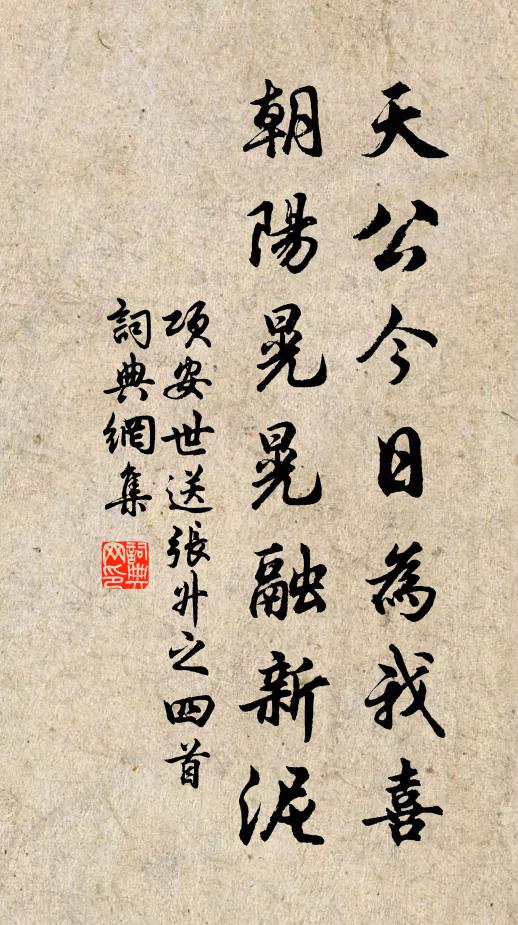 天公今日為我喜
朝陽晃晃融新泥
項安世送張升之四首
詞典網集
詞典網印